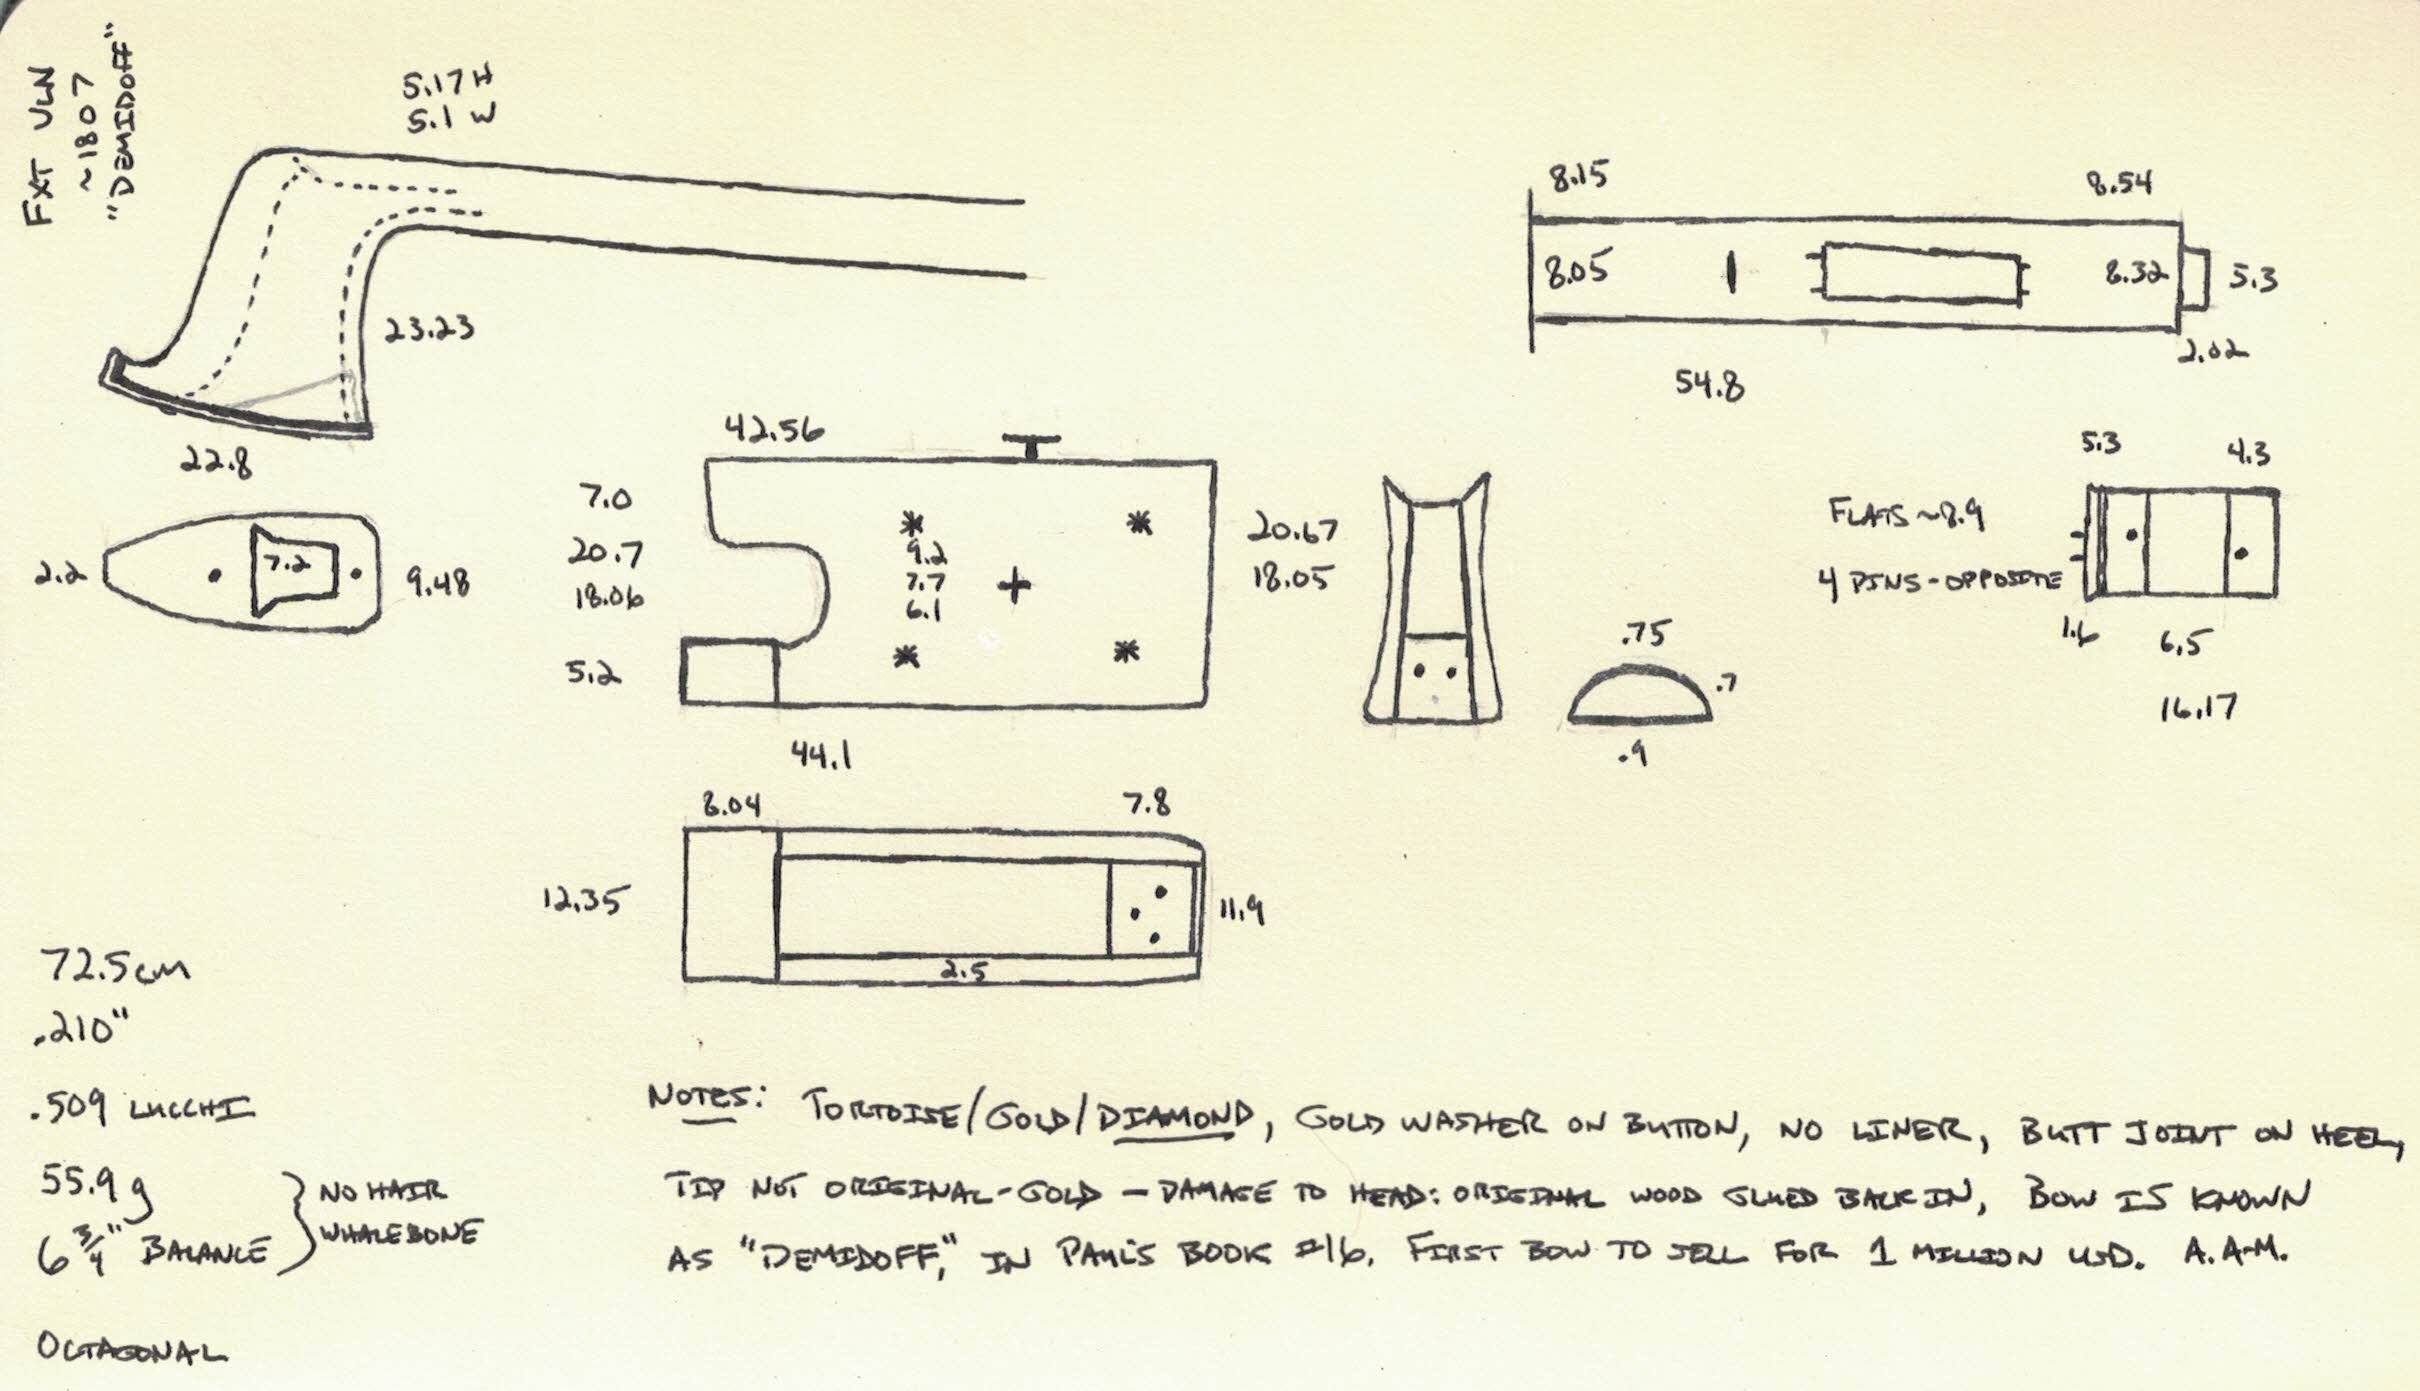 FXT VLN
~1807
"DEMIDOFF"
5.17 H
5.1 W
23.23
22.8
2.2
7.2
9.48
8.15
8.54
8.05
8.32
5.3
2.02
54.8
42.56
7.0
20.7
18.06
5.2
9.2
7.7
6.1
20.67
18.05
44.1
.75
.7
.9
5.3
4.3
FLATS ~8.9
4 PINS-OPPOSITE
1.6
6.5
16.17
8.04
7.8
12.35
11.9
2.5
72.5cm
.210"
.509 LUCCHI
55.9g
6 3/4" BALANCE
NO HAIR
WHALEBONE
OCTAGONAL
NOTES: TORTOISE/GOLD/DIAMOND, GOLD WASHER ON BUTTON, NO LINER, BUTT JOINT ON HEEL,
TIP NOT ORIGINAL-GOLD – DAMAGE TO HEAD: ORIGINAL WOOD GLUED BACK IN, BOW IS KNOWN
AS "DEMIDOFF," IN PAUL'S BOOK #16. FIRST BOW TO SELL FOR 1 MILLION USD. A.A-M.